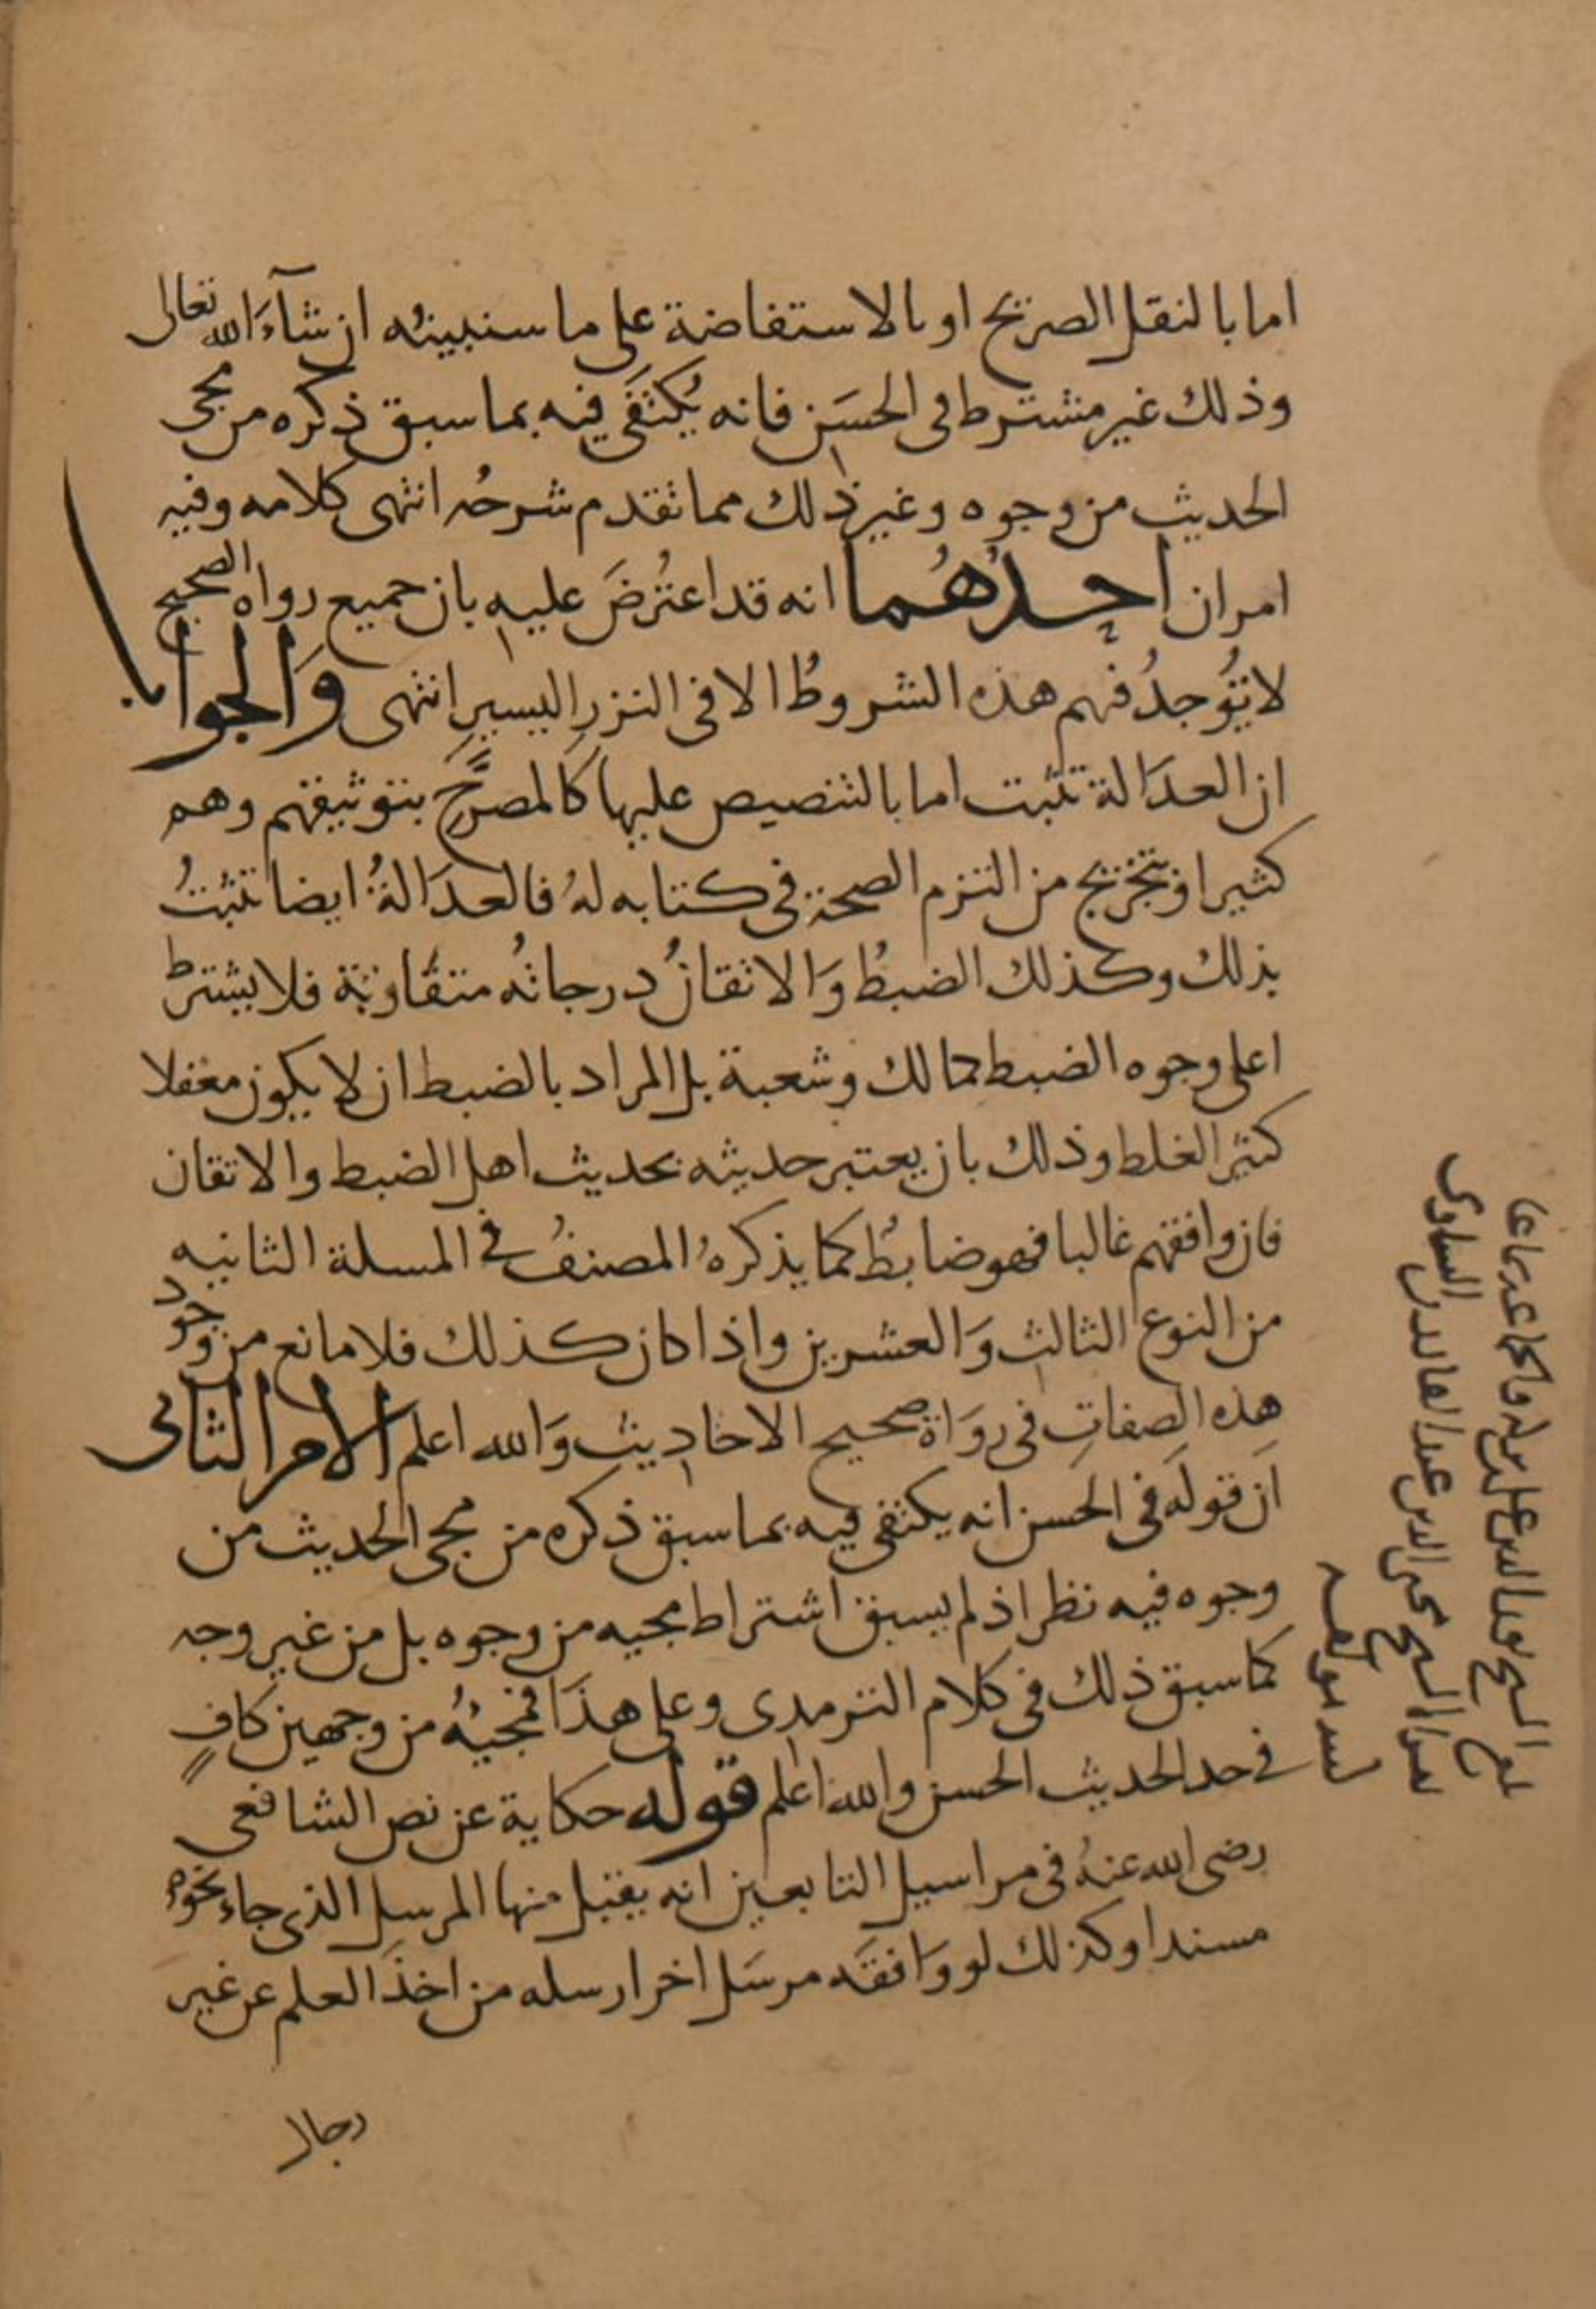 اما بالنقل الصريح او بالاستفاضة على ما سنبينه ان شآءَ الله تعالى
وذلك غير مشترط فى الحسَن فانه يُكتفَى فيه بما سبق ذكره من مجى
الحديث من وجوه وغير ذلك مما تقدم شرحُه انتهى كلامه وفيه
امران احدُهُما انه قد اعتُرضَ عليه بان جميع رواه الصحيح
لا تُوجدُ فيهم هذه الشروطُ الا فى النزر اليسير انتهى وَالجواب
ان العدَالة تثبت اما بالتنصيص عليها كَالمصرَّحِ بتوثيقهم وهم
كثيرا او بتخريج من التزم الصحة فى كتابه لهُ فالعدَالةُ ايضا تثبتُ
بذلك وكذلك الضبطُ وَالاتقانُ درجاتُه متفَاوتة فلا يشترط
اعلى وجوه الضبط كمالك وشعبة بل المراد بالضبط ان لا يكون مغفلا
كثير الغلط وذلك بان يعتبر حديثه بحديث اهل الضبط والاتقان
فان وافقهم غالبا فهو ضابطُ كما يذكرهُ المصنفُ فى المسلة الثانيه
من النوع الثالث وَالعشرين واذا كان كذلك فلا مانع من وجود
هذه الصفاتِ فى روَاة صحيح الاحاديث وَالله اعلم الامر الثانى
ان قولَه فى الحسن انه يكتفى فيه بما سبق ذكره من مجى الحديث من
وجوه فيه نظر اذ لم يسبق اشتراط مجيه من وجوه بل من غير وجه
كما سبق ذلك فى كلام الترمدى وعلى هذَا فمجيئُه من وجهين كافٍ
فى حد الحديث الحسن والله اعلم قوله حكاية عن نص الشافعى
رضى الله عنهُ فى مراسيل التابعين انه يقبل منها المرسل الذى جاء نحوه
مسندا وكذلك لو وَافقَه مرسَل اخر ارسله من اخذَ العلم عن غير
رجال